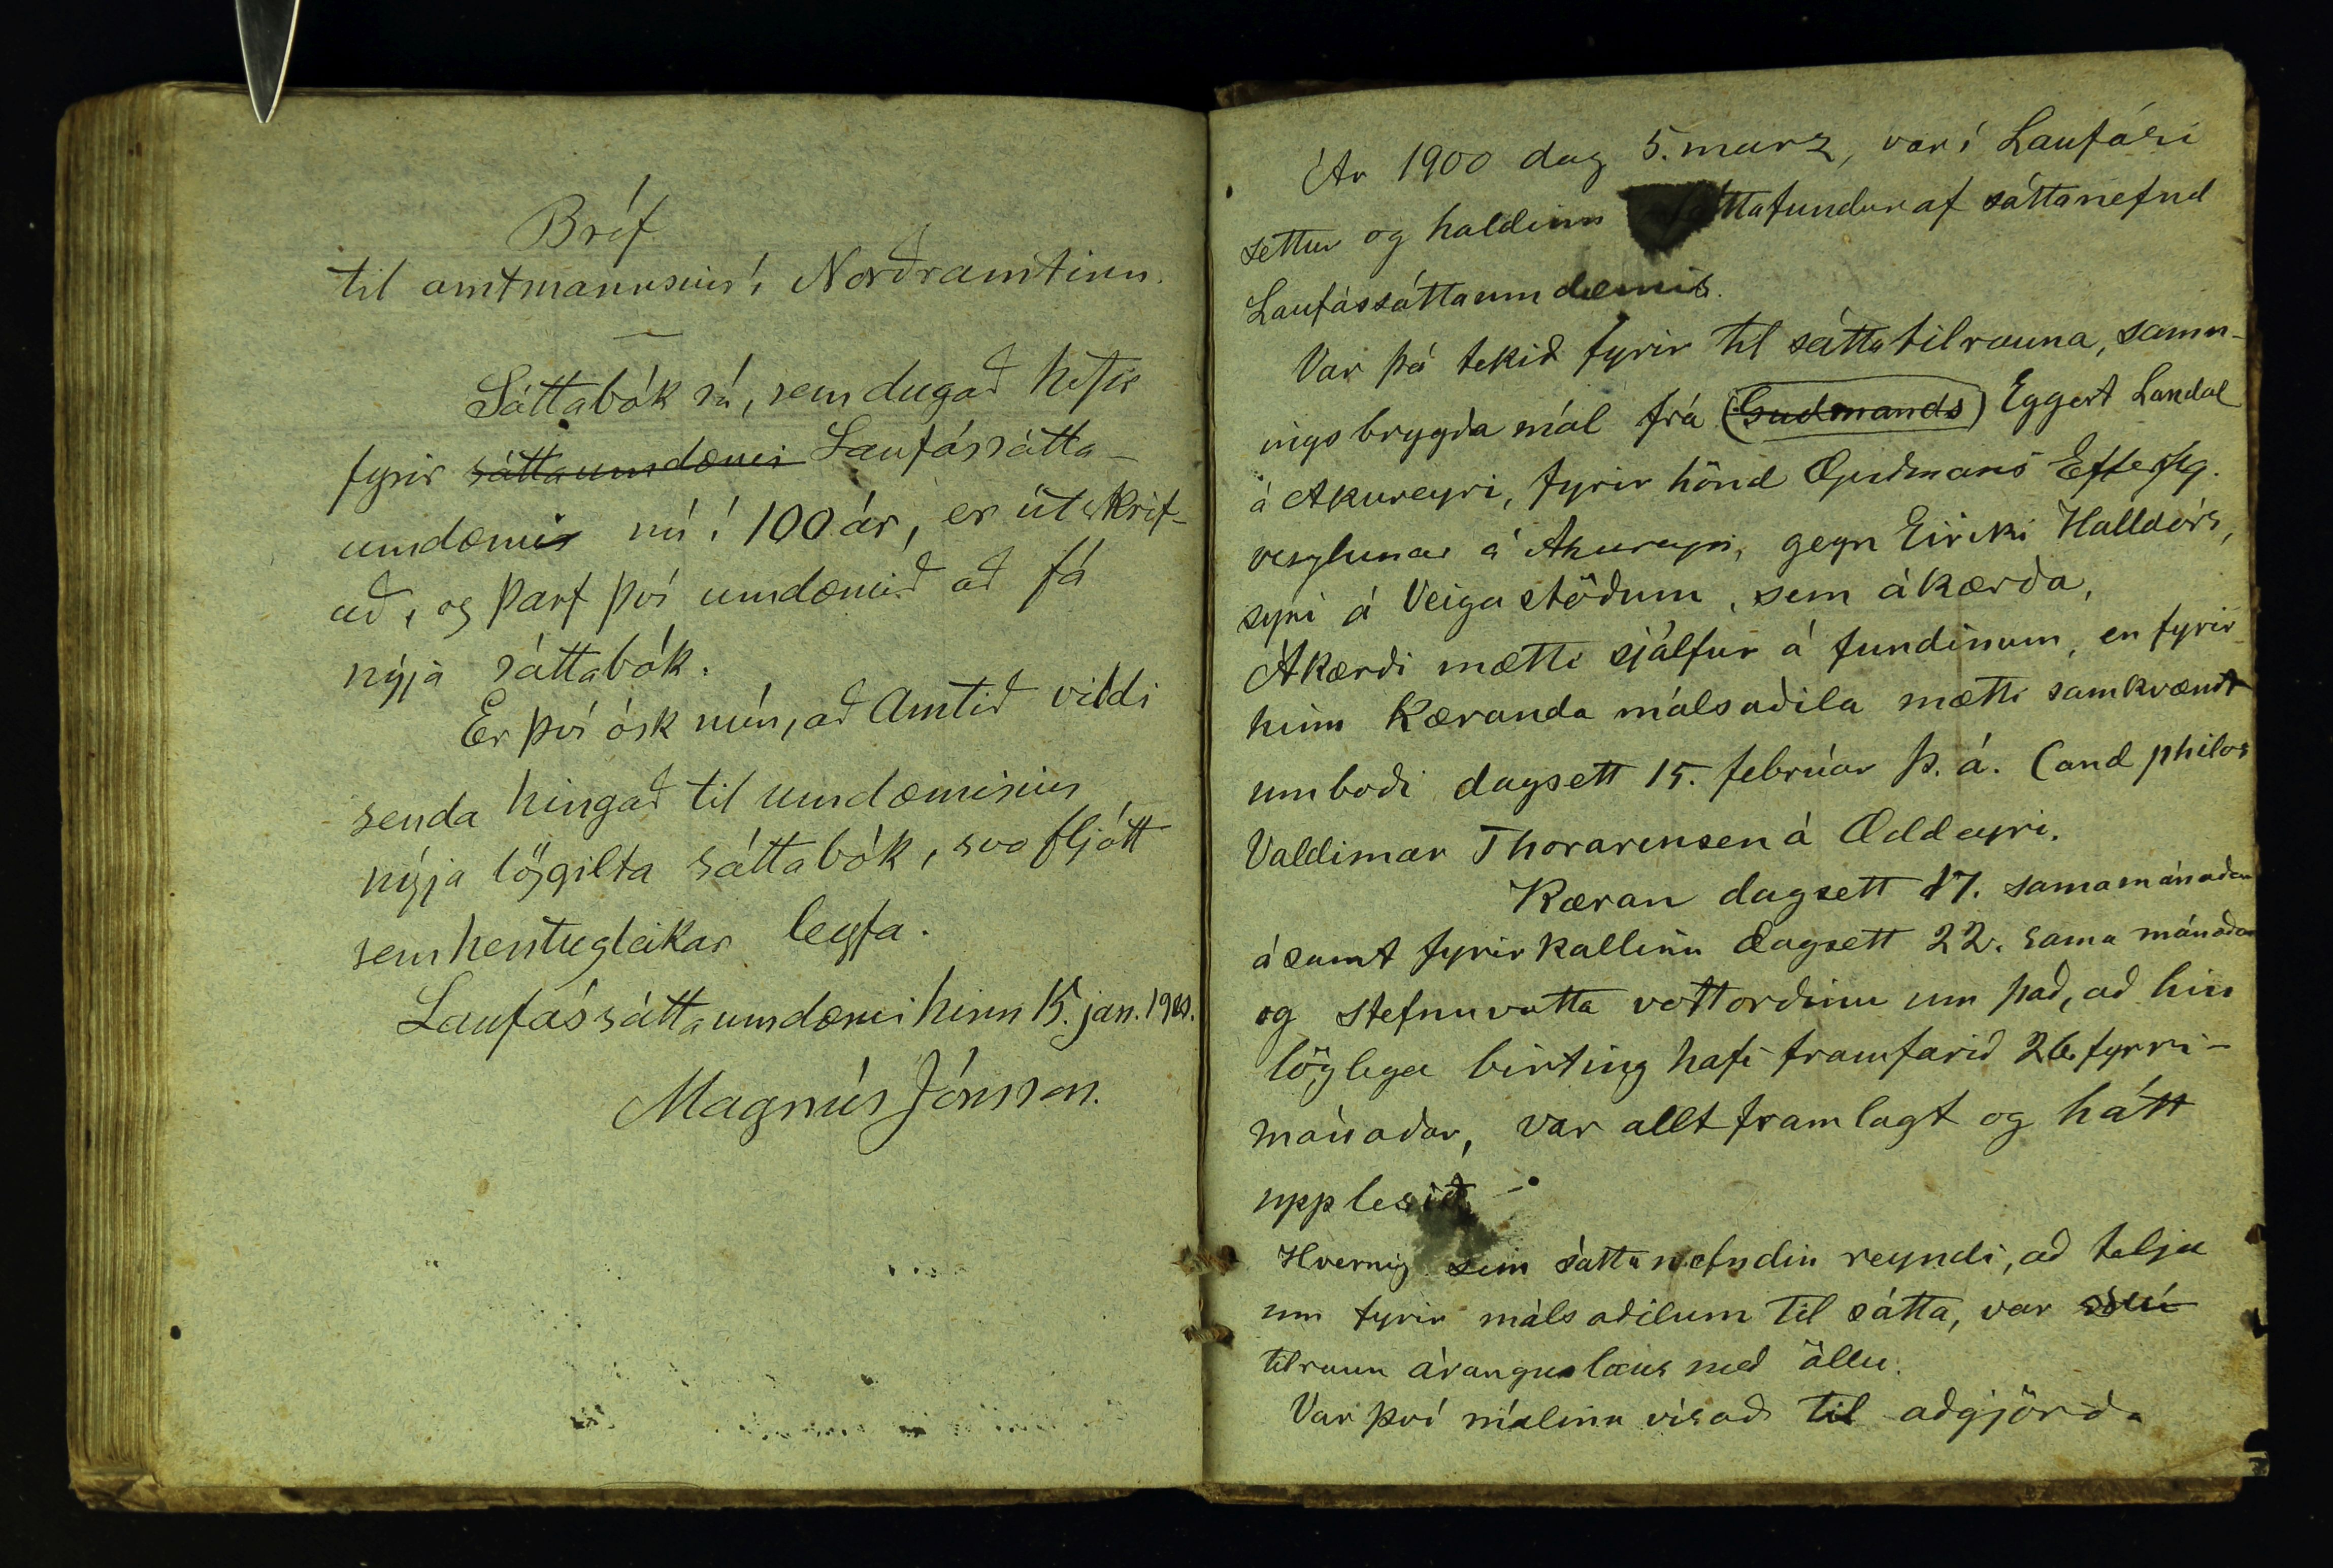 Bréf
til amtmannsins í Norðramtinu.
Sáttabók sú, sem dugað hefir
fyrir sáttaumdæmi Laufássátta-
umdæmis nú í 100 ár, er útskrif-
uð, og þarf því umdæmið að fá
nýja sáttabók.
Er því ósk mín, að Amtið vildi
senda hingað til umdæmisins
nýja löggilta sáttabók, svo fljótt
sem hentugleikar leyfa.
Laufássáttaumdæmi hinn 15. jan.
Magnús Jónsson.
Ár 1900 dag 5. marz, var í Laufási
settur og haldinn sáttafundur af sáttanefnd
Laufássáttaumdæmis.
Var þá tekið fyrir til sáttatilrauna, samn-
ings brygða mál frá (Gudmands) Eggert Laxdal
á Akureyri, fyrir hönd Guðmans Efterflg.
verzlunar á Akureyri, gegn Eiríki Halldórs,
syni á Veigastöðum, sem ákærða,
Ákærði mætti sjálfur á fundinum, en fyrir
hinn Kæranda málsaðila mætti samkvæmt
umboði dagsett 15. febrúar þ. á. Cand philos
Valdimar Thorarensen á Oddeyri.
Kæran dagsett 17. sama mánaðar
ásamt fyrirkallinu dagsett 22. sama mánaðar
og stefnuvotta vottorðinu um það, að hin
löglega birting hafi framfarið 26. fyrri-
mánaðar, var allt framlagt og hátt
upplesið. -
Hvernig sem sáttanefndin reyndi, að telja
um fyrir málsaðilum til sátta, var sú
tilraun árangurslaus með öllu.
Var því málinu vísað til aðgjörða